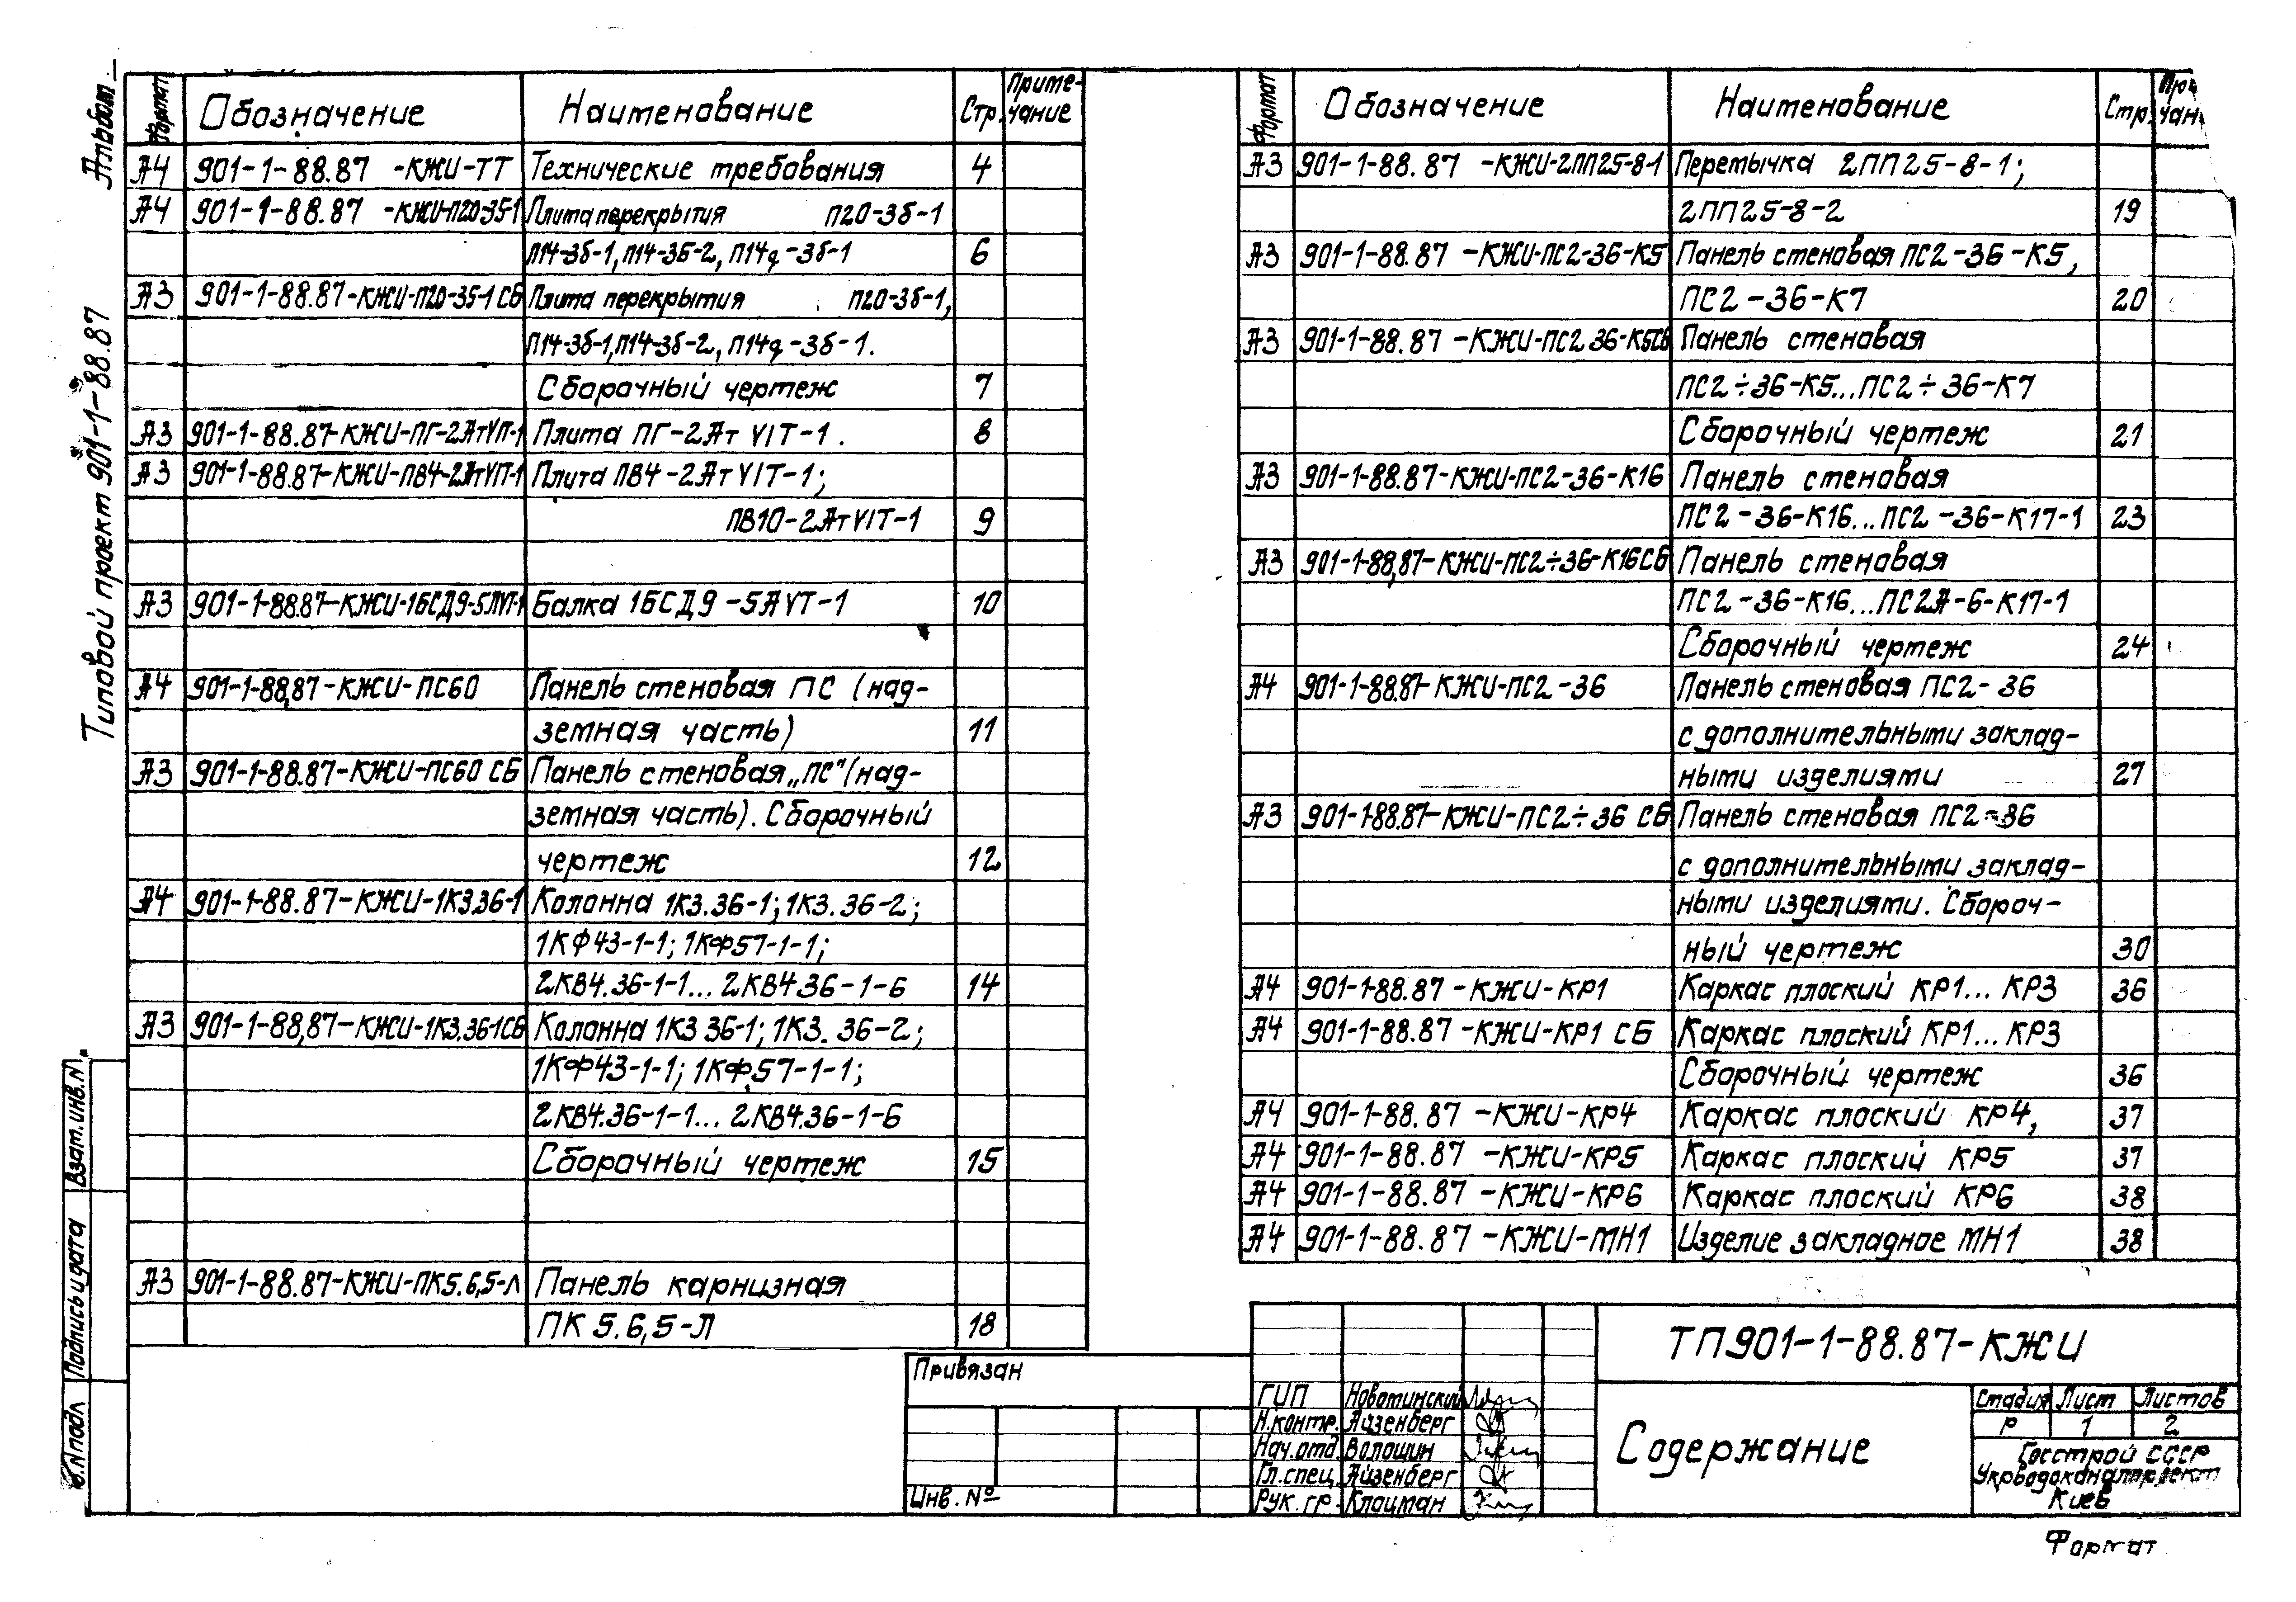 Альбом
Типовой проект 901-1-88.87
Формат Обозначение Наименование Стр. Приме-чание
А4 901-1-88.87 -КЖИ-ТТ Технические требования 4
А4 901-1-88.87 -КЖИ-П20-3б-1 Плита перекрытия П20-3б-1
П14-3б-1, П14-3б-2, П14д-3б-1 6
А3 901-1-88.87-КЖИ-П20-3б-1 СБ Плита перекрытия П20-3б-1,
П14-3б-1, П14-3б-2, П14д-3б-1.
Сборочный чертеж 7
А3 901-1-88.87-КЖИ-ПГ-2АтVIТ-1 Плита ПГ-2Ат VIТ-1. 8
А3 901-1-88.87-КЖИ-ПВ4-2АтVIТ-1 Плита ПВ4-2АтVIТ-1;
ПВ10-2АтVIТ-1 9
А3 901-1-88.87-КЖИ-1БСД9-5АVТ-1 Балка 1БСД9-5АVТ-1 10
А4 901-1-88.87-КЖИ-ПС60 Панель стеновая ПС (над-
земная часть) 11
А3 901-1-88.87-КЖИ-ПС60 СБ Панель стеновая „ПС" (над-
земная часть). Сборочный
чертеж 12
А4 901-1-88.87-КЖИ-1К3.36-1 Колонна 1К3.36-1; 1К3.36-2;
1КФ43-1-1; 1КФ57-1-1;
2КВ4.36-1-1... 2КВ436-1-6 14
А3 901-1-88.87-КЖИ-1К3.36-1СБ Колонна 1К3 36-1; 1К3. 36-2;
1КФ43-1-1; 1КФ57-1-1;
2КВ4.36-1-1... 2КВ4.36-1-6
Сборочный чертеж 15
А3 901-1-88.87-КЖИ-ПК5.6,5-Л Панель карнизная
ПК 5.6,5-Л 18
Формат Обозначение Наименование Стр.
А3 901-1-88.87 -КЖИ-2ПП25-8-1 Перемычка 2ПП25-8-1;
2ПП25-8-2 19
А3 901-1-88.87 -КЖИ-ПС2-36-К5 Панель стеновая ПС2-36-К5,
ПС2-36-К7 20
А3 901-1-88.87 -КЖИ-ПС2 36-К5СБ Панель стеновая
ПС2÷36-К5...ПС2÷36-К7
Сборочный чертеж 21
А3 901-1-88.87-КЖИ-ПС2-36-К16 Панель стеновая
ПС2-36-К16...ПС2-36-К17-1 23
А3 901-1-88,87-КЖИ-ПС2÷36-К16СБ Панель стеновая
ПС2-36-К16...ПС2А-6-К17-1
Сборочный чертеж 24
А4 901-1-88.87-КЖИ-ПС2-36 Панель стеновая ПС2-36
с дополнительными заклад-
ными изделиями 27
А3 901-1-88.87-КЖИ-ПС2÷36 СБ Панель стеновая ПС2-36
с дополнительными заклад-
ными изделиями. Сбороч-
ный чертеж 30
А4 901-1-88.87 -КЖИ-КР1 Каркас плоский КР1... КР3 36
А4 901-1-88.87 -КЖИ-КР1 СБ Каркас плоский КР1... КР3
Сборочный чертеж 36
А4 901-1-88.87 -КЖИ-КР4 Каркас плоский КР4, 37
А4 901-1-88.87 -КЖИ-КР5 Каркас плоский КР5 37
А4 901-1-88.87 -КЖИ-КР6 Каркас плоский КР6 38
А4 901-1-88.87 -КЖИ-МН1 Изделие закладное МН1 38
Взам.инв.N
Подпись и дата
Привязан
Инв. №
ГИП Новотинский
Н.контр. Айзенберг
Нач.отд. Волошин
Гл.спец. Айзенберг
Рук.гр. Клоцман
ТП901-1-88.87-КЖИ
Содержание
Стадия Лист Листов
Р 1 2
Госстрой СССР
Укрводоканалпроект
Киев
Формат